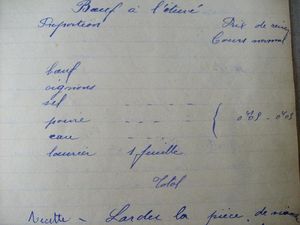 Bœuf à l'étuvé
Proportion Prix de revient
Cours normal
bœuf
oignons
sel
poivre - - - 0,05 - 0,05
eau - - -
laurier 1 feuille
Total
Larder la pièce de